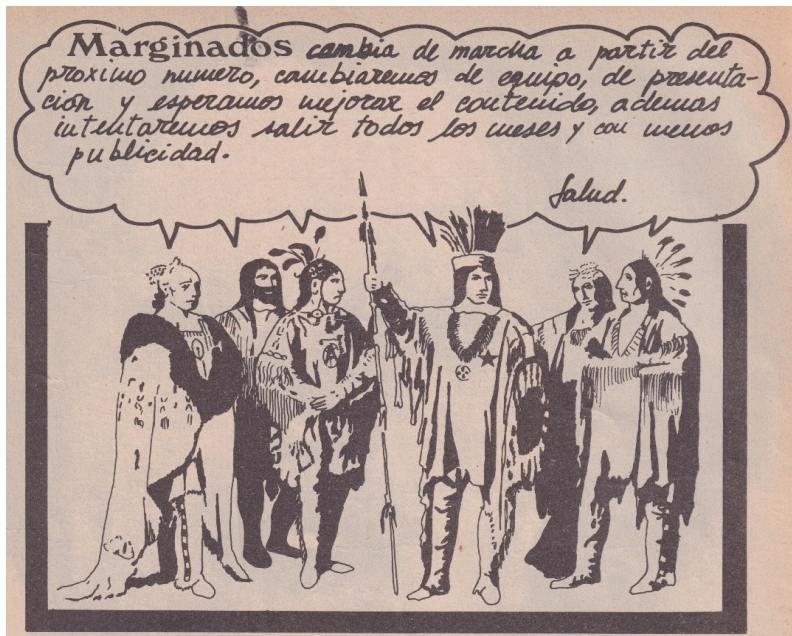 Marginados cambia de marcha a partir del
proximo numero, cambiaremos de equipo, de presenta-
ción y esperamos mejorar el contenido, ademas
intentaremos salir todos los meses y con menos
publicidad.
Salud.